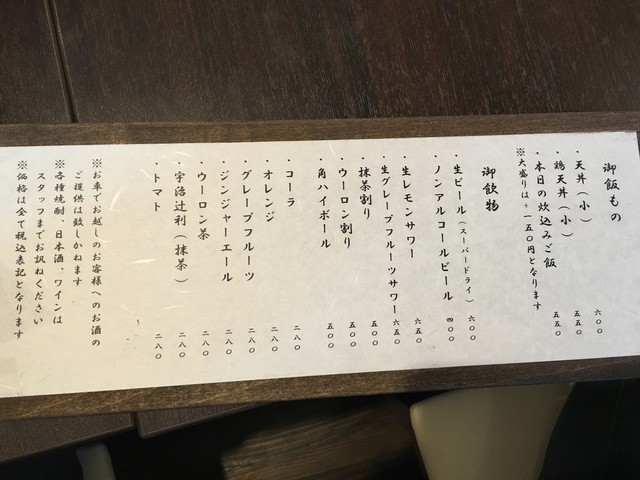 御飯もの
・天丼（小） 六〇〇
・鶏天丼（小） 五五〇
・本日の炊込みご飯 五五〇
※大盛りは+一五〇円となります
御飲物
・生ビール（スーパードライ） 六〇〇
・ノンアルコールビール 四〇〇
・生レモンサワー 六五〇
・生グレープフルーツサワー 六五〇
・抹茶割り 五〇〇
・ウーロン割り 五〇〇
・角ハイボール 五〇〇
・コーラ 二八〇
・オレンジ 二八〇
・グレープフルーツ 二八〇
・ジンジャーエール 二八〇
・ウーロン茶 二八〇
・宇治辻利（抹茶） 二八〇
・トマト 二八〇
※お車でお越しのお客様へのお酒の
ご提供は致しかねます
※各種焼酎、日本酒、ワインは
スタッフまでお訊ねください
※価格は全て税込表記となります